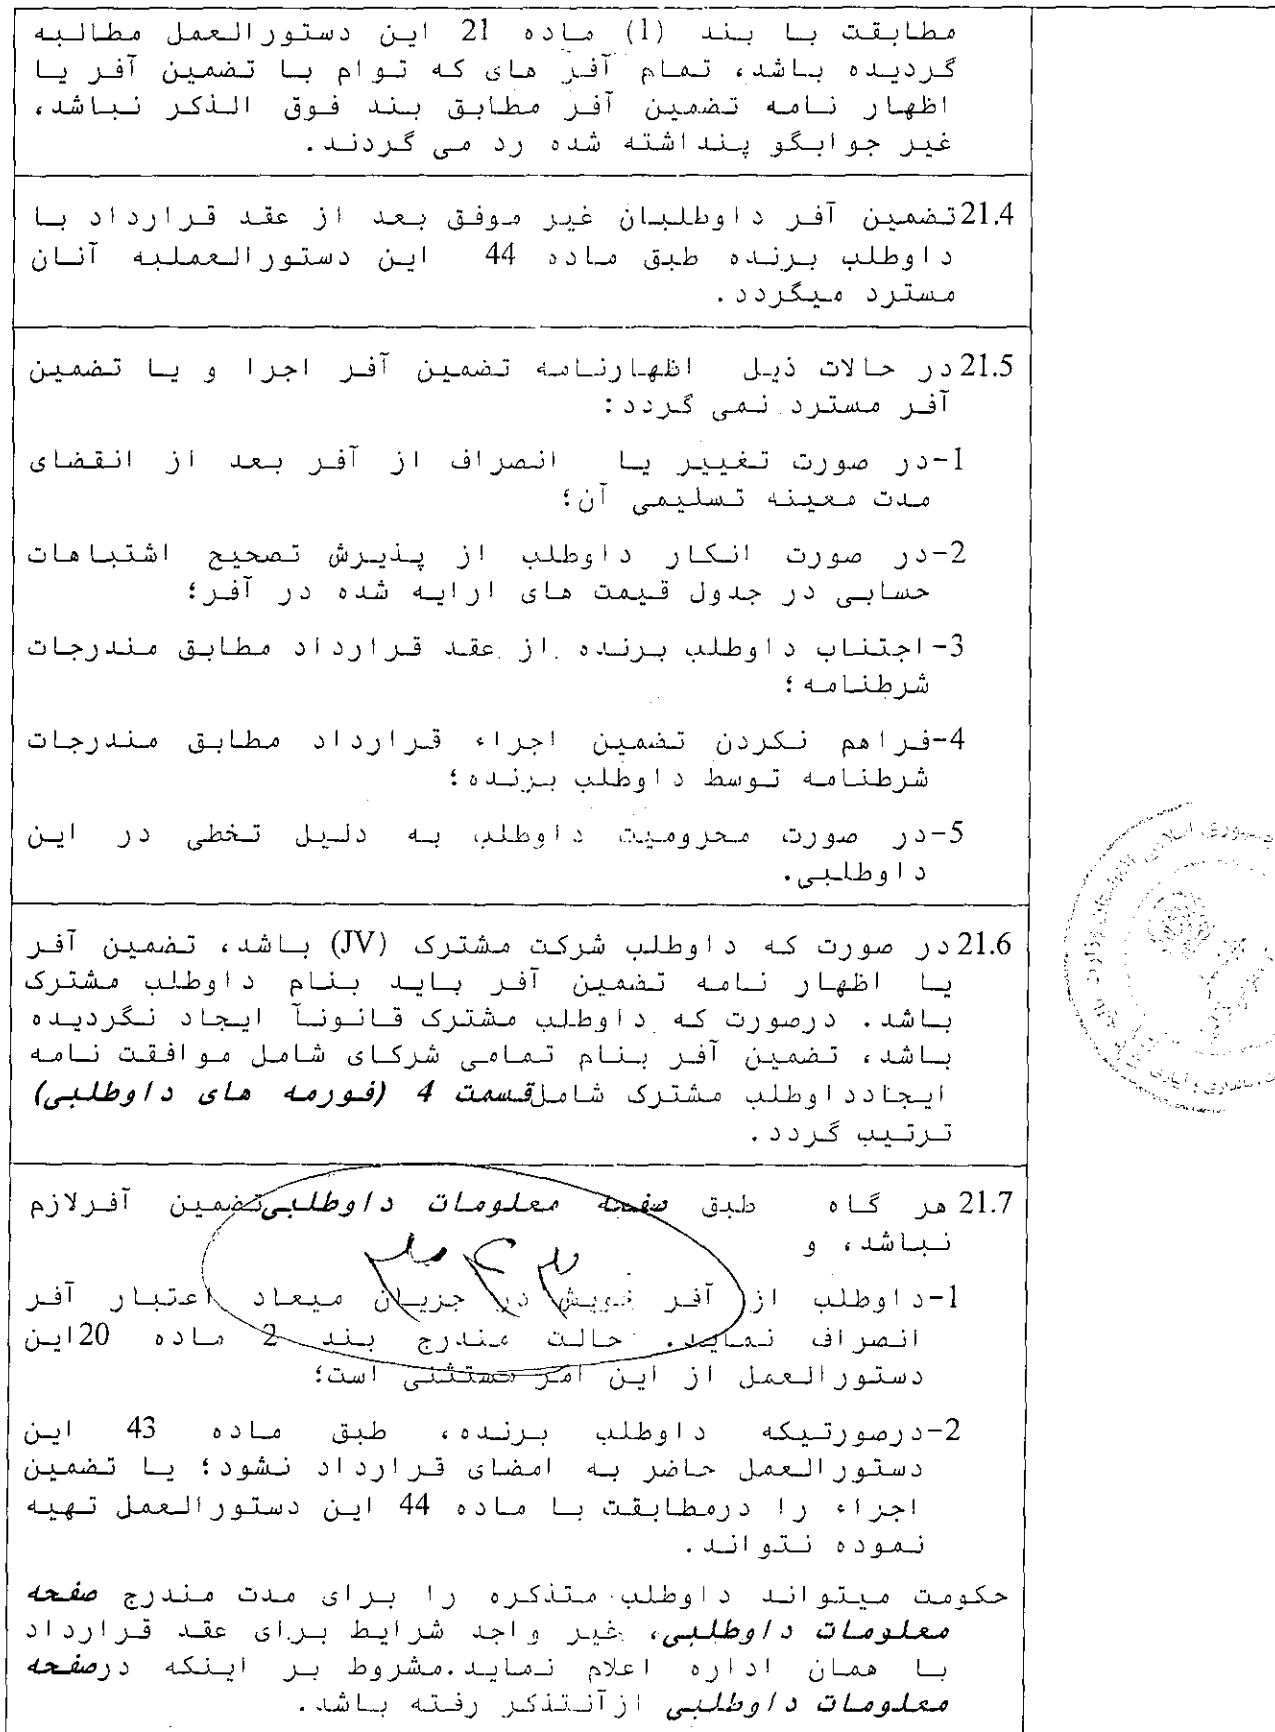 مطابقت با بند (1) ماده 21 این دستورالعمل مطالبه
گردیده باشد، تمام آفر های که توام با تضمین آفر یا
اظهار نامه تضمین آفر مطابق بند فوق الذکر نباشد،
غیر جوابگو پنداشته شده رد می گردند.
21.4 تضمین آفر داوطلبان غیر موفق بعد از عقد قرارداد با
داوطلب برنده طبق ماده 44 این دستورالعملبه آنان
مسترد میگردد.
21.5 در حالات ذیل اظهارنامه تضمین آفر اجرا و یا تضمین
آفر مسترد نمی گردد:
1-در صورت تغییر یا انصراف از آفر بعد از انقضای
مدت معینه تسلیمی آن؛
2-در صورت انکار داوطلب از پذیرش تصحیح اشتباهات
حسابی در جدول قیمت های ارایه شده در آفر؛
3-اجتناب داوطلب برنده از عقد قرارداد مطابق مندرجات
شرطنامه؛
4-فراهم نکردن تضمین اجراء قرارداد مطابق مندرجات
شرطنامه توسط داوطلب برنده؛
5-در صورت محرومیت داوطلب به دلیل تخطی در این
داوطلبی.
21.6 در صورت که داوطلب شرکت مشترک (JV) باشد، تضمین آفر
یا اظهار نامه تضمین آفر باید بنام داوطلب مشترک
باشد. درصورت که داوطلب مشترک قانوناً ایجاد نگردیده
باشد، تضمین آفر بنام تمامی شرکای شامل موافقت نامه
ایجادداوطلب مشترک شاملقسمت 4 (فورمه های داوطلبی)
ترتیب گردد.
21.7 هر گاه طبق صفحه معلومات داوطلبیتضمین آفرلازم
نباشد، و
۳۴۳
1-داوطلب از آفر خویش در جریان میعاد اعتبار آفر
انصراف نماید. حالت مندرج بند 2 ماده 20این
دستورالعمل از این امر مستثنی است؛
2-درصورتیکه داوطلب برنده، طبق ماده 43 این
دستورالعمل حاضر به امضای قرارداد نشود؛ یا تضمین
اجراء را درمطابقت با ماده 44 این دستورالعمل تهیه
نموده نتواند.
حکومت میتواند داوطلب متذکره را برای مدت مندرج صفحه
معلومات داوطلبی، غیر واجد شرایط برای عقد قرارداد
با همان اداره اعلام نماید.مشروط بر اینکه درصفحه
معلومات داوطلبی ازآنتذکر رفته باشد.